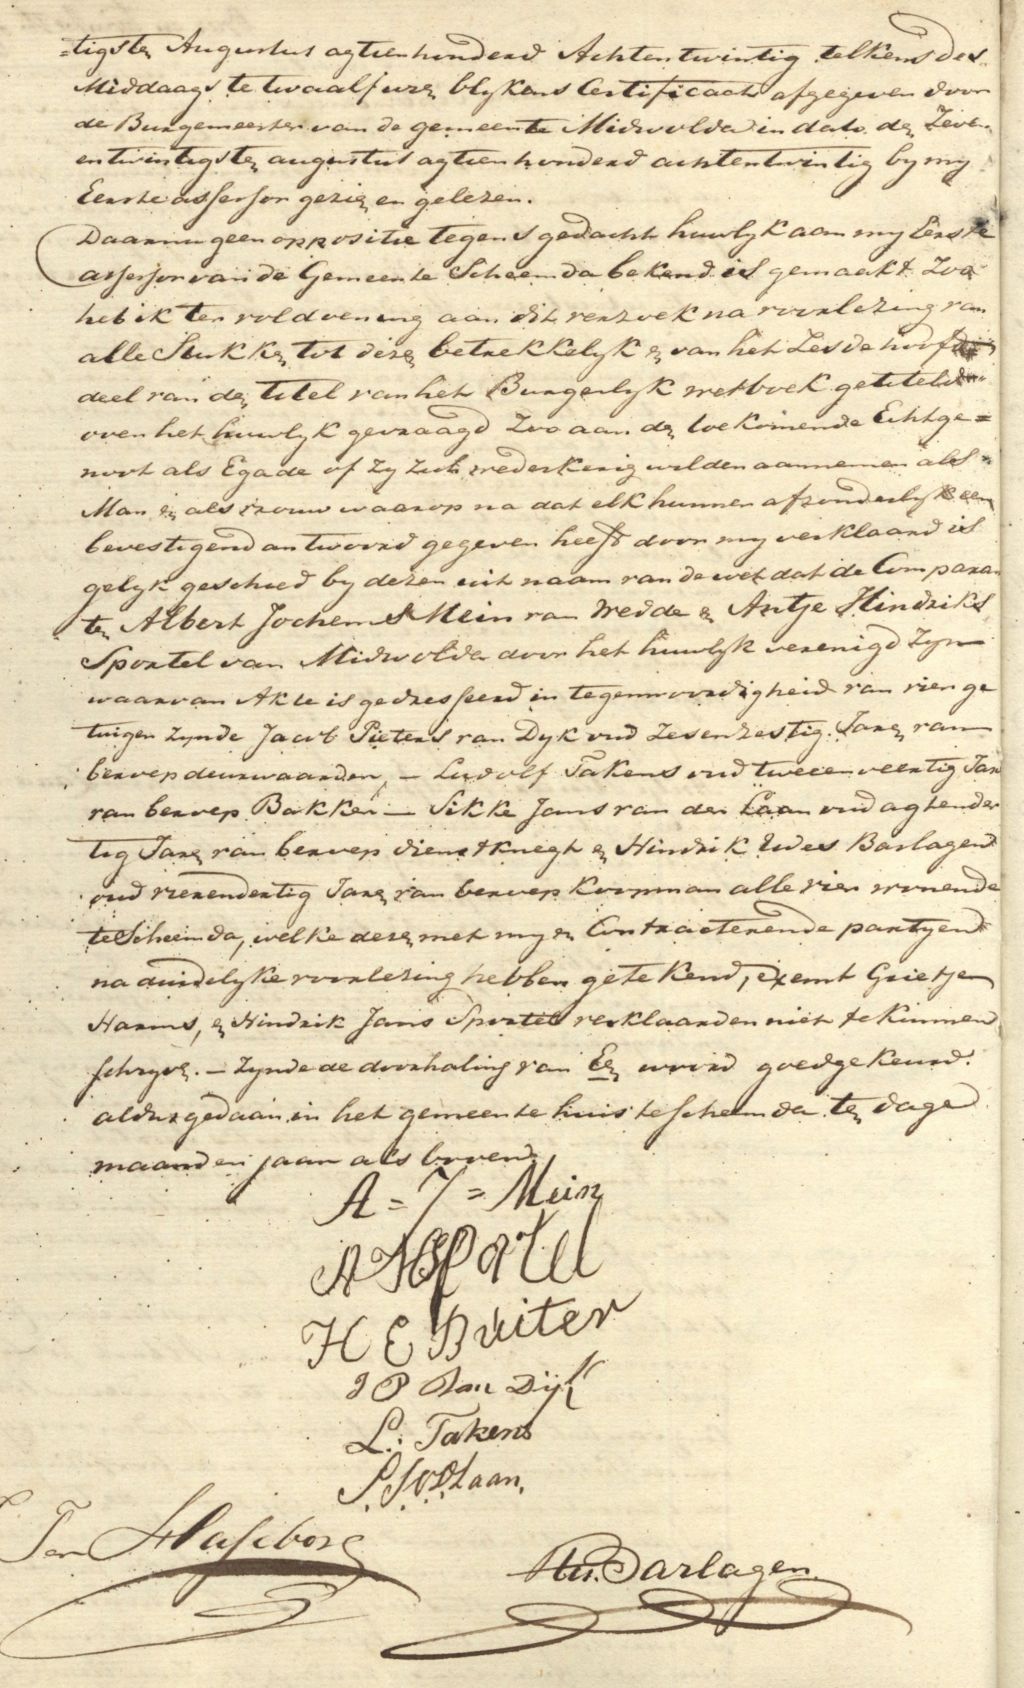 =tigsten Augustus agtienhonderd Achtentwintig telkens des
Middaags te twaalf uren blykens Certificaat afgegeven door
de Burgemeester van de gemeente Midwolda in dato den Zeven
entwintigsten augustus agtienhonderd achtentwintig by my
Eerste assessor gezien en gelezen.
Daar nu geen oppositie tegens gedacht huwlyk aan my Eerste
assessor van de Gemeente Scheemda bekend is gemaakt Zoo
heb ik ter voldoening aan dit verzoek na voorlezing van
alle Stukken tot dezen betrekkelyk en van het Zesde hoofd
deel van den titel van het Burgerlyk wetboek getiteld
over het huwlyk gevraagd Zoo aan den toekomende Echtge=
noot als Egade of Zy Zich wederkerig wilden aannemen als
Man en als vrouw waarop na dat elk hunner afzonderlyk een
bevestigend antwoord gegeven heeft door my verklaard is
gelyk geschied by dezen uit naam van de wet dat de Comparan
ten Albert Jochems Mein van Wedde en Antje Hindriks
Sportel van Midwolda door het huwlyk verenigd Zyn
waarvan Akte is gedresseerd in tegenwoordigheid van vier ge
tuigen Zynde Jacob Pieters van Dyk oud Zesenzestig Jaren van
beroep deurwaarder, — Ludolf Takens oud tweeenveertig Jare
van beroep Bakker — Sikke Jans van der Laan oud agtender
tig Jaren van beroep dienstknegt en Hindrik Udes Barlagen
oud vierendertig Jaren van beroep Koopman alle vier wonende
te Scheemda, welke dezen met my en Contracterende partyen
na duidelyke voorlezing hebben getekend, exemt Grietje
Harms, en Hindrik Jans Sportel verklaarden niet te kunnen
schryven. — Zynde de doorhaling van Een woord goedgekeurd.
aldus gedaan in het gemeente huis te Scheemda ten dage
maand en jaar als boven.
A = J = Mein
A H Sportel
H E Buiter
J P Van Dijk
L. Takens
S J v D Laan.
Ter Haseborg
Hu. Barlagen.